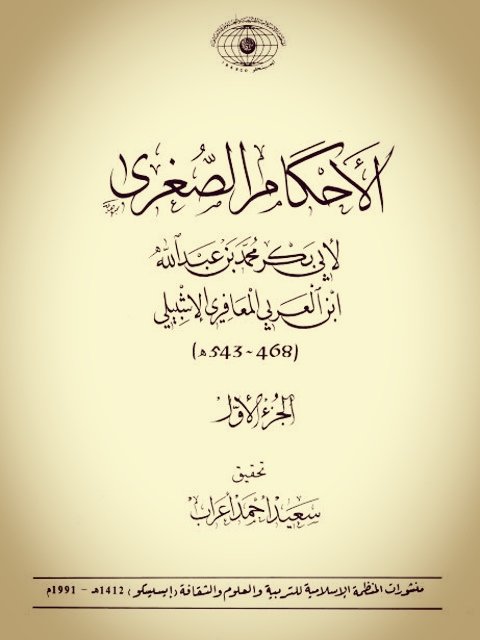 الأحكام الصغرى
لأبي بكر محمد بن عبد الله
ابن العربي المعافري الإشبيلي
(468 - 543 هـ)
الجزء الأول
تحقيق
سعيد أحمد أعراب
منشورات المنظمة الإسلامية للتربية والعلوم والثقافة (إيسيسكو) 1412هـ - 1991م